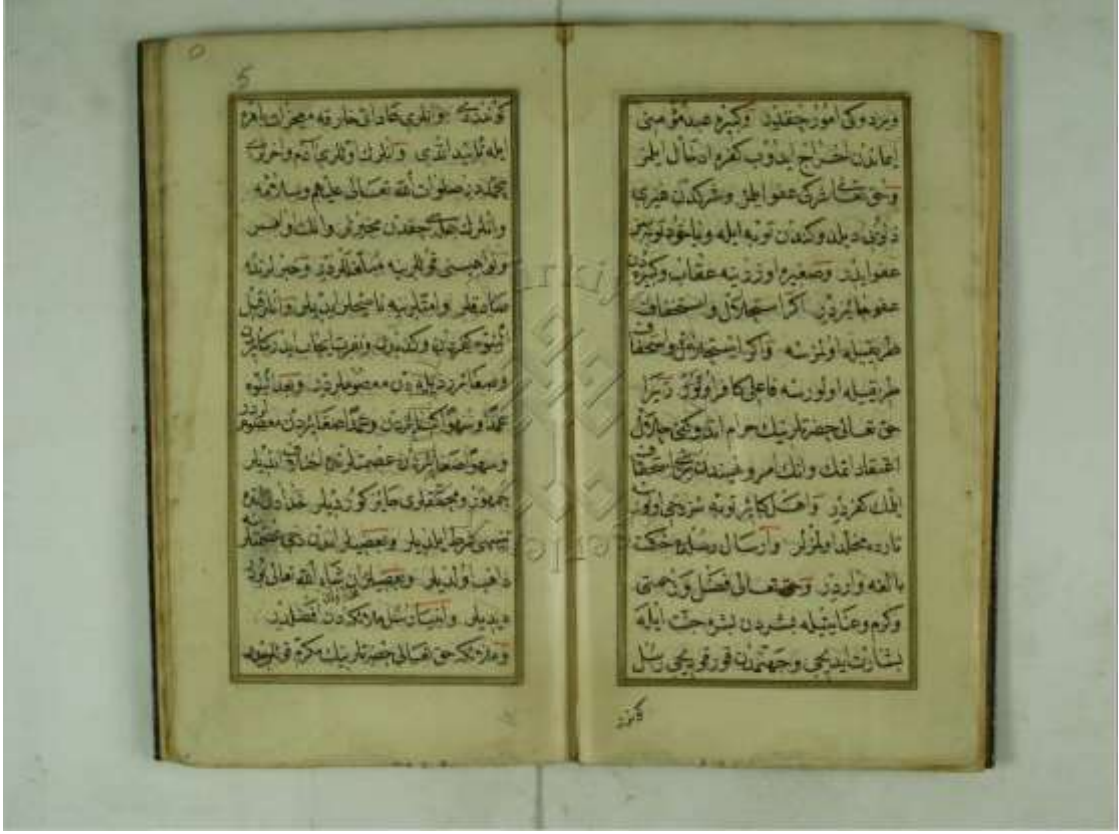 ويردوكى امور چقديدر وكبيره عبد مؤمنى
ايماندن اخراج ايدوب كفره ادخال ايلمز
وحق تعالى شركى عفو ايلمز وشركدن غيرى
ديلدوكندن توبه ايله وياخود توبه سز
عفو ايدر وصغيره اوزرينه عقاب وكبيره دن
عفو جائزدر اكر استحلال واستخفاف
طريقيله اولمزسه واكر استحلال واستخفاف
طريقيله اولورسه فاعلى كافر اولور زيرا
حق تعالى حضرتلرينك حرام اندوكنى حلال
اعتقاد ايتمك وانك امر ونهيندن استخفاف
ايلمك كفردر واهل كبائر توبه سز دخى اولور
نارده مخلد اولمزلر وارسال رسلده حكمت
بالغه واردر وحق تعالى فضل ورحمتى
وكرم وعنايتيله بشردن بشره جنت ايله
بشارت ايديجى وجهنمدن قورقويجى رسل
كوندر
5
كوندردى وانلرى عاداتى خارقه معجزات باهره
ايله تأييد اتدى وانلرك اوللرى آدم واخرلرى
محمددر صلوات الله تعالى عليهم وسلامه
وانلرك جمله سى حقدن مخبرلر وانك اوامر
ونواهيسنى قوللرينه مبلغلردر وخبرلرنده
صادقلر وامتلرينه ناصحلر ايديلر وانلر قبل
النبوه كفردن وكذبدن ونفرت ايجاب ايدر كبائردن
وصغائردن معصوملردر وبعد النبوه
عمدا وسهوا كبائردن وعمدا صغائردن معصوملردر
وسهوا صغائردن عصمتلرنده اختلاف اتديلر
جمهور ومحققلرى جائز كورديلر
وبعضيلر اندن دخى عصمتلرينه
ذاهب اولديلر وبعضيلر ان شاء الله تعالى
ديديلر وانسان رسل ملائكه دن افضلدر
وملائكه حق تعالى حضرتلرينك مكرم قوللريدر